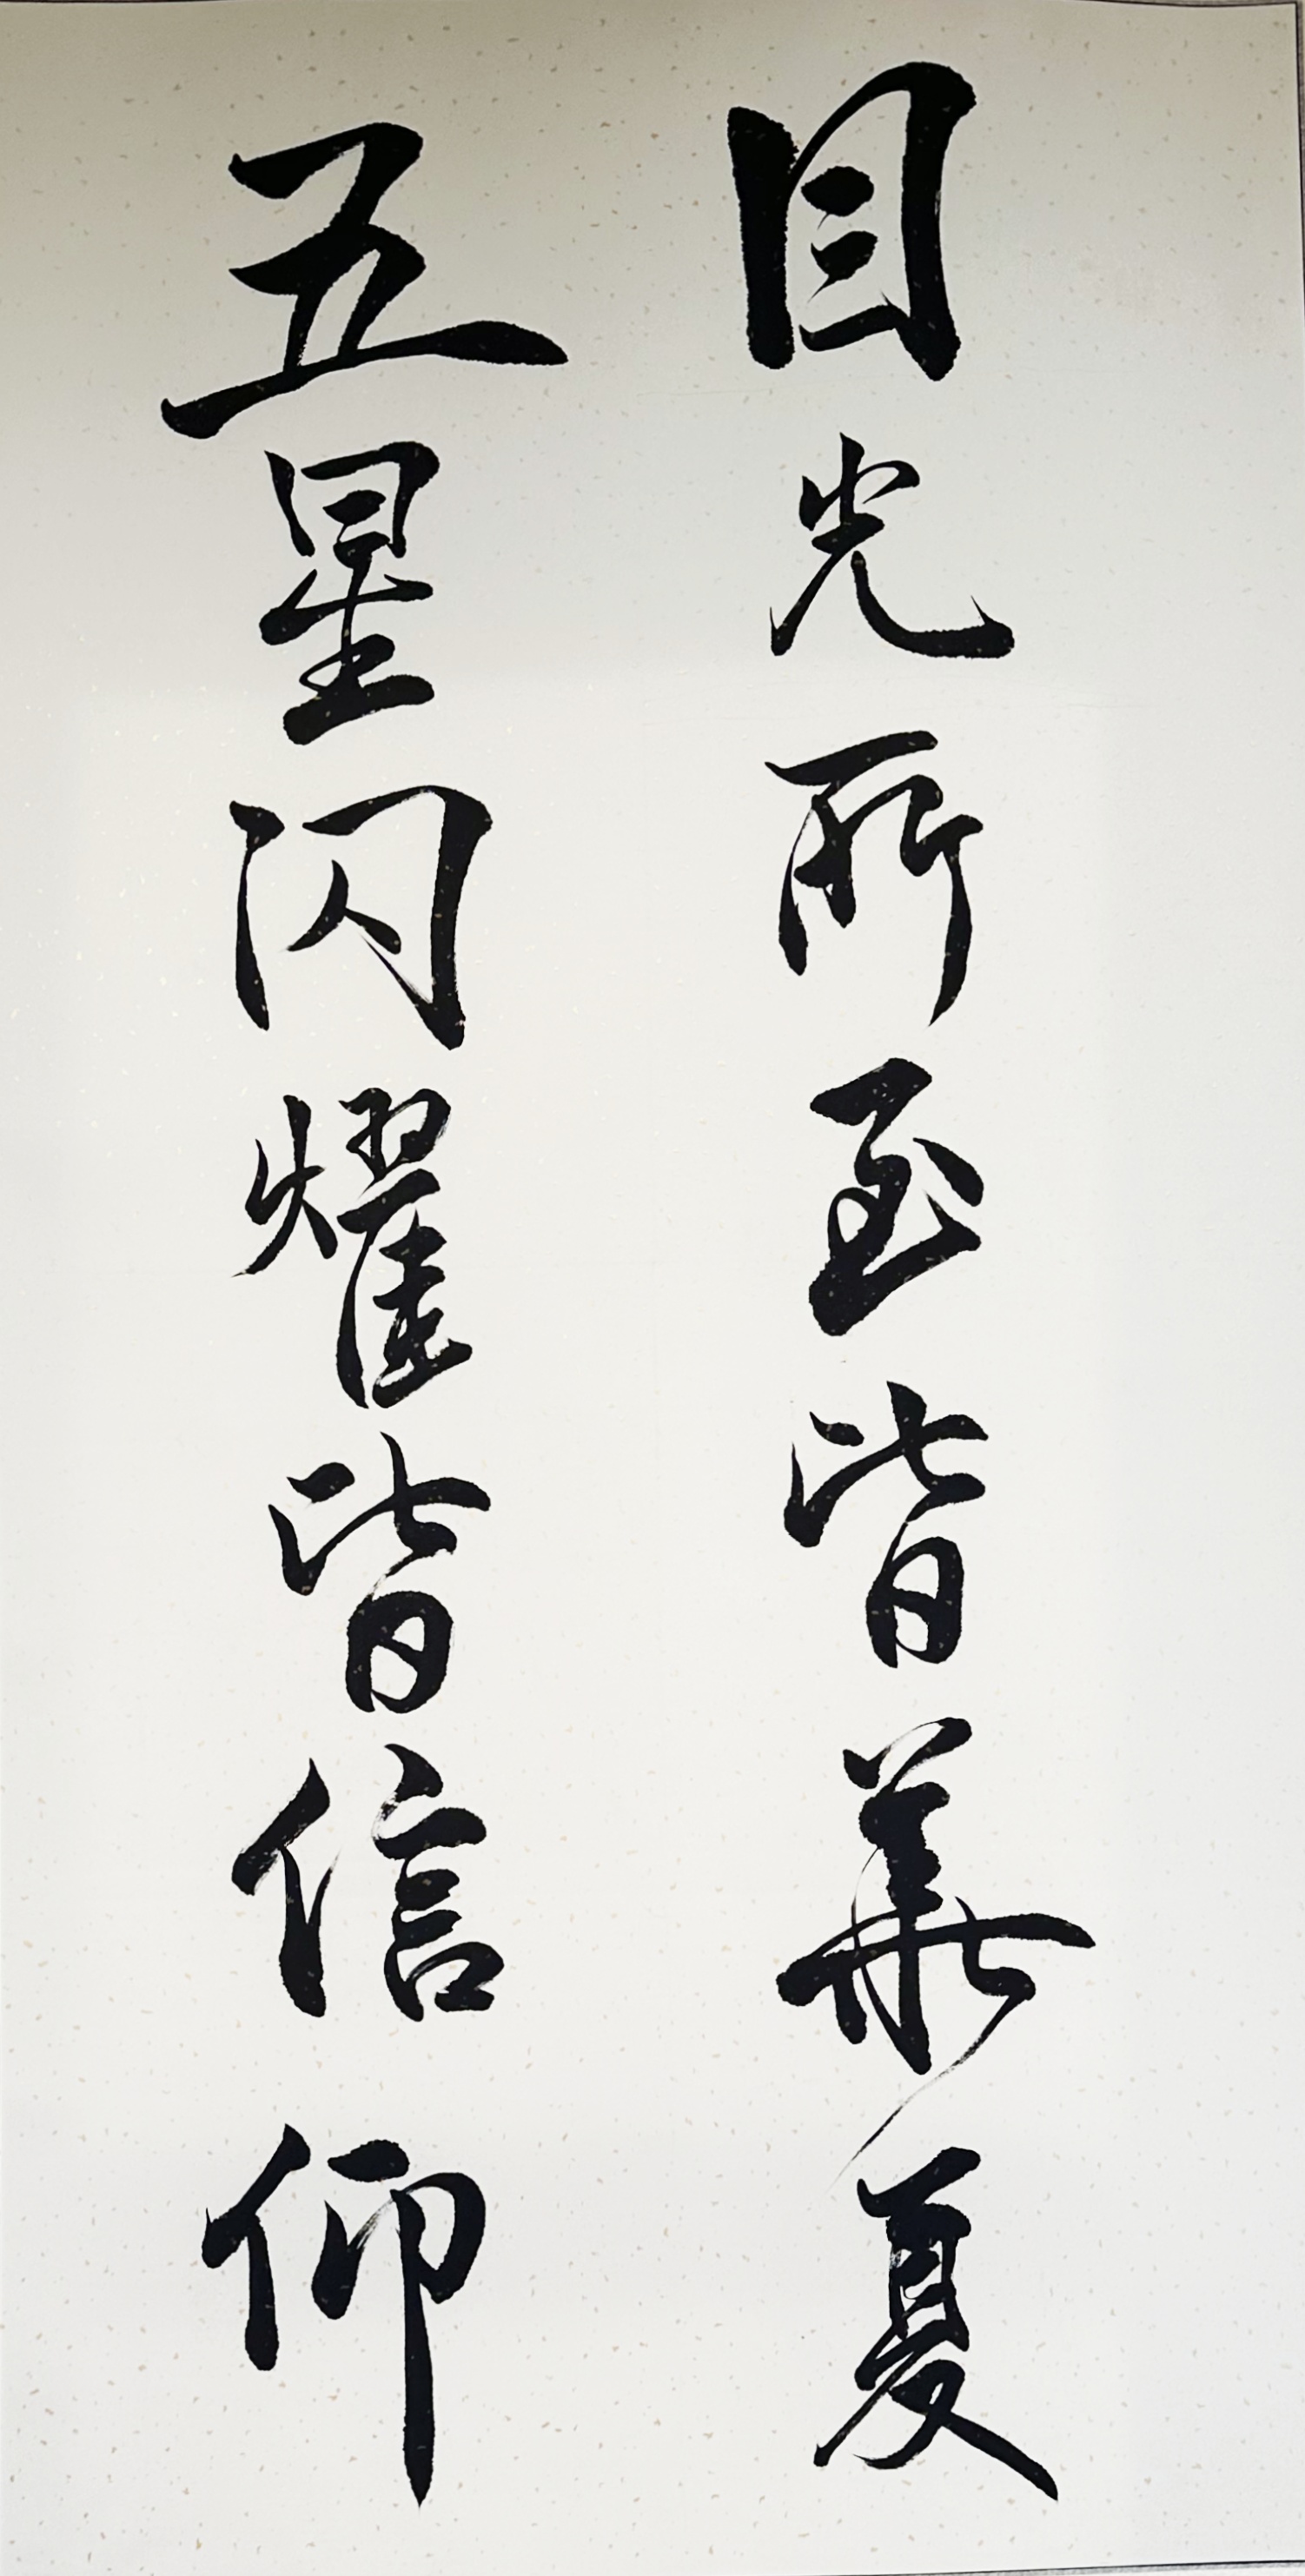 目光所至皆華夏
五星闪耀皆信仰